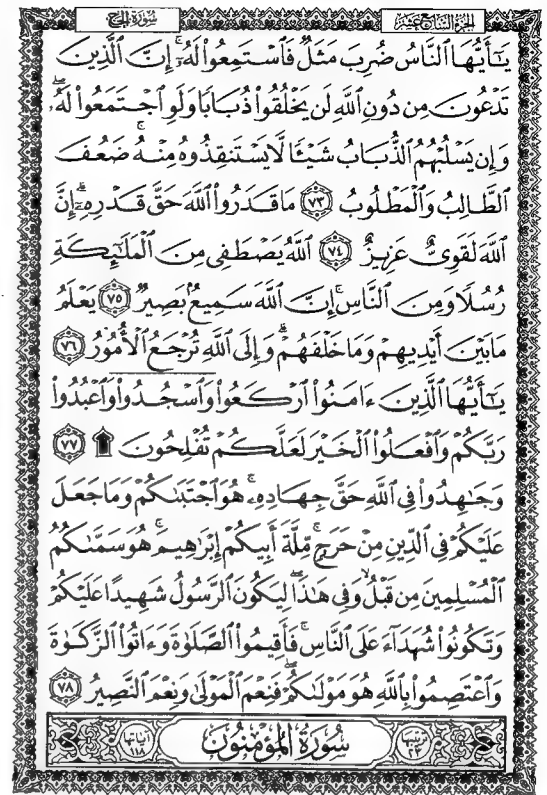 الجُزْءُ السَّابِعَ عَشَرَ
سُورَةُ الحَجِّ
يَٰٓأَيُّهَا ٱلنَّاسُ ضُرِبَ مَثَلٌ فَٱسْتَمِعُوا۟ لَهُۥٓ ۚ إِنَّ ٱلَّذِينَ
تَدْعُونَ مِن دُونِ ٱللَّهِ لَن يَخْلُقُوا۟ ذُبَابًا وَلَوِ ٱجْتَمَعُوا۟ لَهُۥ ۖ
وَإِن يَسْلُبْهُمُ ٱلذُّبَابُ شَيْـًٔا لَّا يَسْتَنقِذُوهُ مِنْهُ ۚ ضَعُفَ
ٱلطَّالِبُ وَٱلْمَطْلُوبُ ٧٣ مَا قَدَرُوا۟ ٱللَّهَ حَقَّ قَدْرِهِۦٓ ۗ إِنَّ
ٱللَّهَ لَقَوِىٌّ عَزِيزٌ ٧٤ ٱللَّهُ يَصْطَفِى مِنَ ٱلْمَلَٰٓئِكَةِ
رُسُلًا وَمِنَ ٱلنَّاسِ ۚ إِنَّ ٱللَّهَ سَمِيعٌۢ بَصِيرٌ ٧٥ يَعْلَمُ
مَا بَيْنَ أَيْدِيهِمْ وَمَا خَلْفَهُمْ ۗ وَإِلَى ٱللَّهِ تُرْجَعُ ٱلْأُمُورُ ٧٦
يَٰٓأَيُّهَا ٱلَّذِينَ ءَامَنُوا۟ ٱرْكَعُوا۟ وَٱسْجُدُوا۟ وَٱعْبُدُوا۟
رَبَّكُمْ وَٱفْعَلُوا۟ ٱلْخَيْرَ لَعَلَّكُمْ تُفْلِحُونَ ۩ ٧٧
وَجَٰهِدُوا۟ فِى ٱللَّهِ حَقَّ جِهَادِهِۦ ۚ هُوَ ٱجْتَبَىٰكُمْ وَمَا جَعَلَ
عَلَيْكُمْ فِى ٱلدِّينِ مِنْ حَرَجٍ ۚ مِّلَّةَ أَبِيكُمْ إِبْرَٰهِيمَ ۚ هُوَ سَمَّىٰكُمُ
ٱلْمُسْلِمِينَ مِن قَبْلُ وَفِى هَٰذَا لِيَكُونَ ٱلرَّسُولُ شَهِيدًا عَلَيْكُمْ
وَتَكُونُوا۟ شُهَدَآءَ عَلَى ٱلنَّاسِ ۚ فَأَقِيمُوا۟ ٱلصَّلَوٰةَ وَءَاتُوا۟ ٱلزَّكَوٰةَ
وَٱعْتَصِمُوا۟ بِٱللَّهِ هُوَ مَوْلَىٰكُمْ ۖ فَنِعْمَ ٱلْمَوْلَىٰ وَنِعْمَ ٱلنَّصِيرُ ٧٨
ترتيبها ٢٣ سُورَةُ المُؤْمِنُونَ آياتها